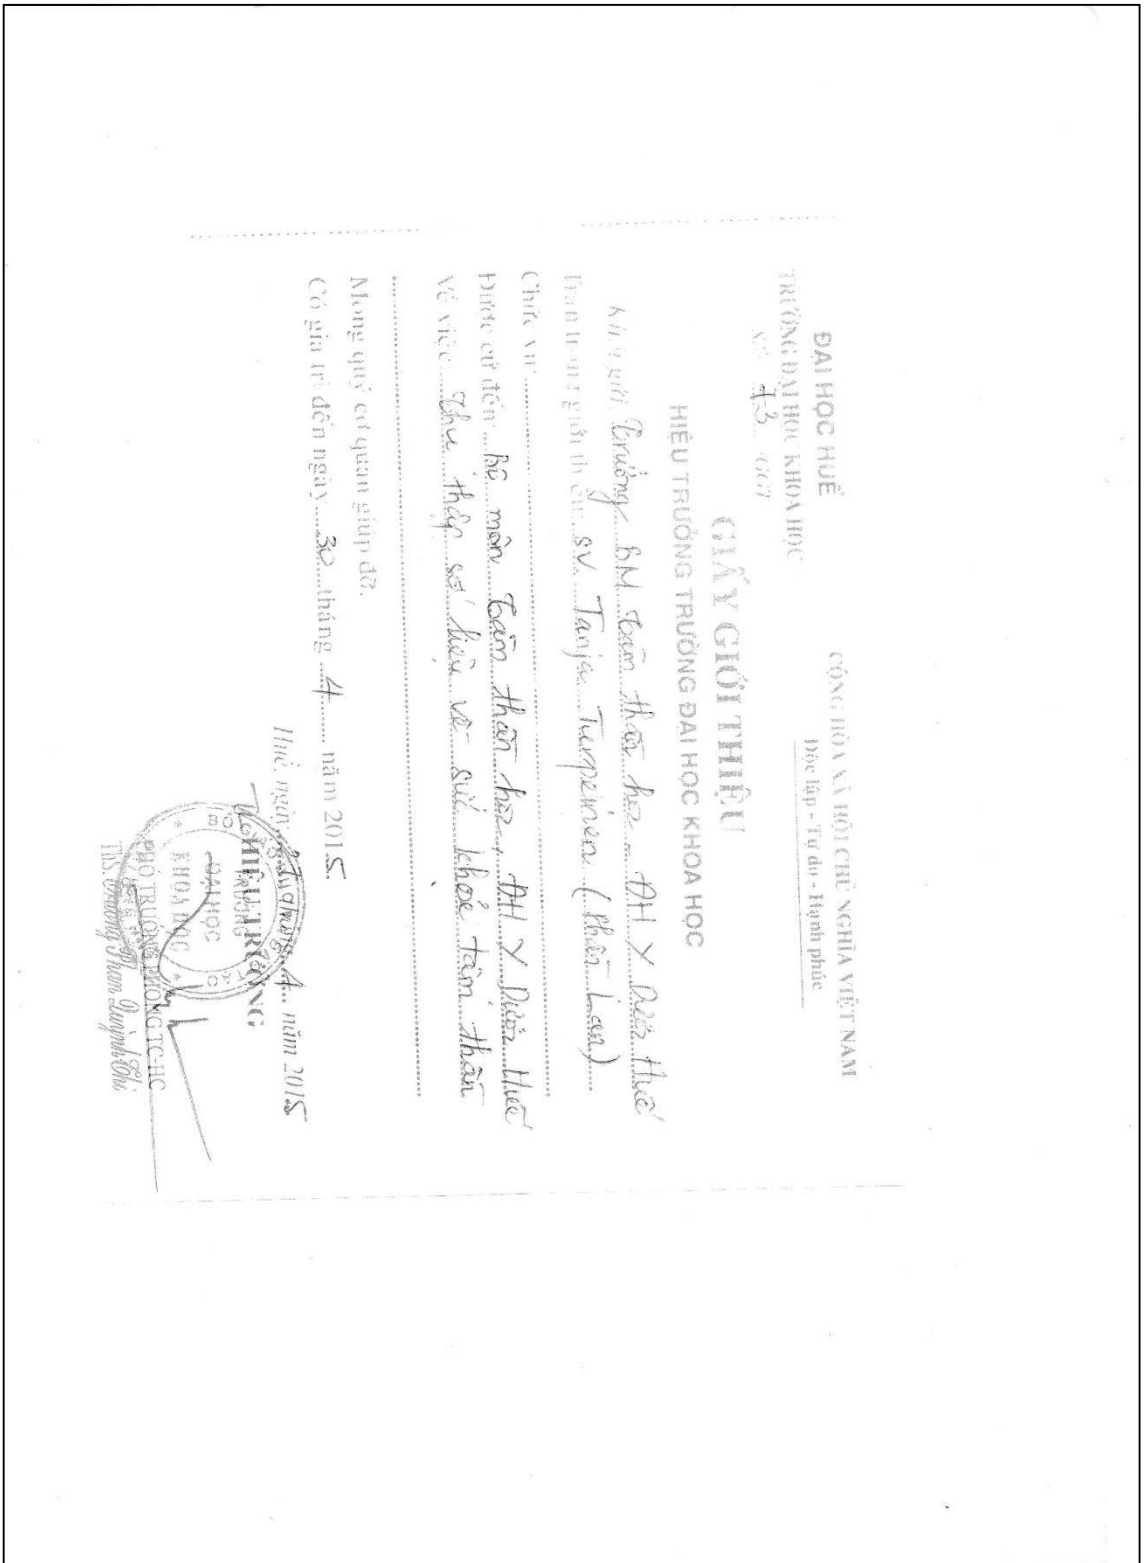 ĐẠI HỌC HUẾ
TRƯỜNG ĐẠI HỌC KHOA HỌC
Số 73 /GGT
CỘNG HÒA XÃ HỘI CHỦ NGHĨA VIỆT NAM
Độc lập - Tự do - Hạnh phúc
GIẤY GIỚI THIỆU
HIỆU TRƯỞNG TRƯỜNG ĐẠI HỌC KHOA HỌC
Kính gửi: Trưởng BM tâm thần học - ĐH Y Dược Huế
Trân trọng giới thiệu: sv. Tanja Turpeinen (Phần Lan)
Chức vụ
Được cử đến: Bộ môn Tâm thần học, ĐH Y Dược Huế
Về việc: thu thập số liệu về sức khoẻ tâm thần
Mong quý cơ quan giúp đỡ.
Có giá trị đến ngày 30 tháng 4 năm 2015.
Huế, ngày tháng 4 năm 2015
HIỆU TRƯỞNG
TRƯỜNG
ĐẠI HỌC
KHOA HỌC
PHÓ TRƯỞNG PHÒNG TC-HC
ThS. Phan Quỳnh Chi